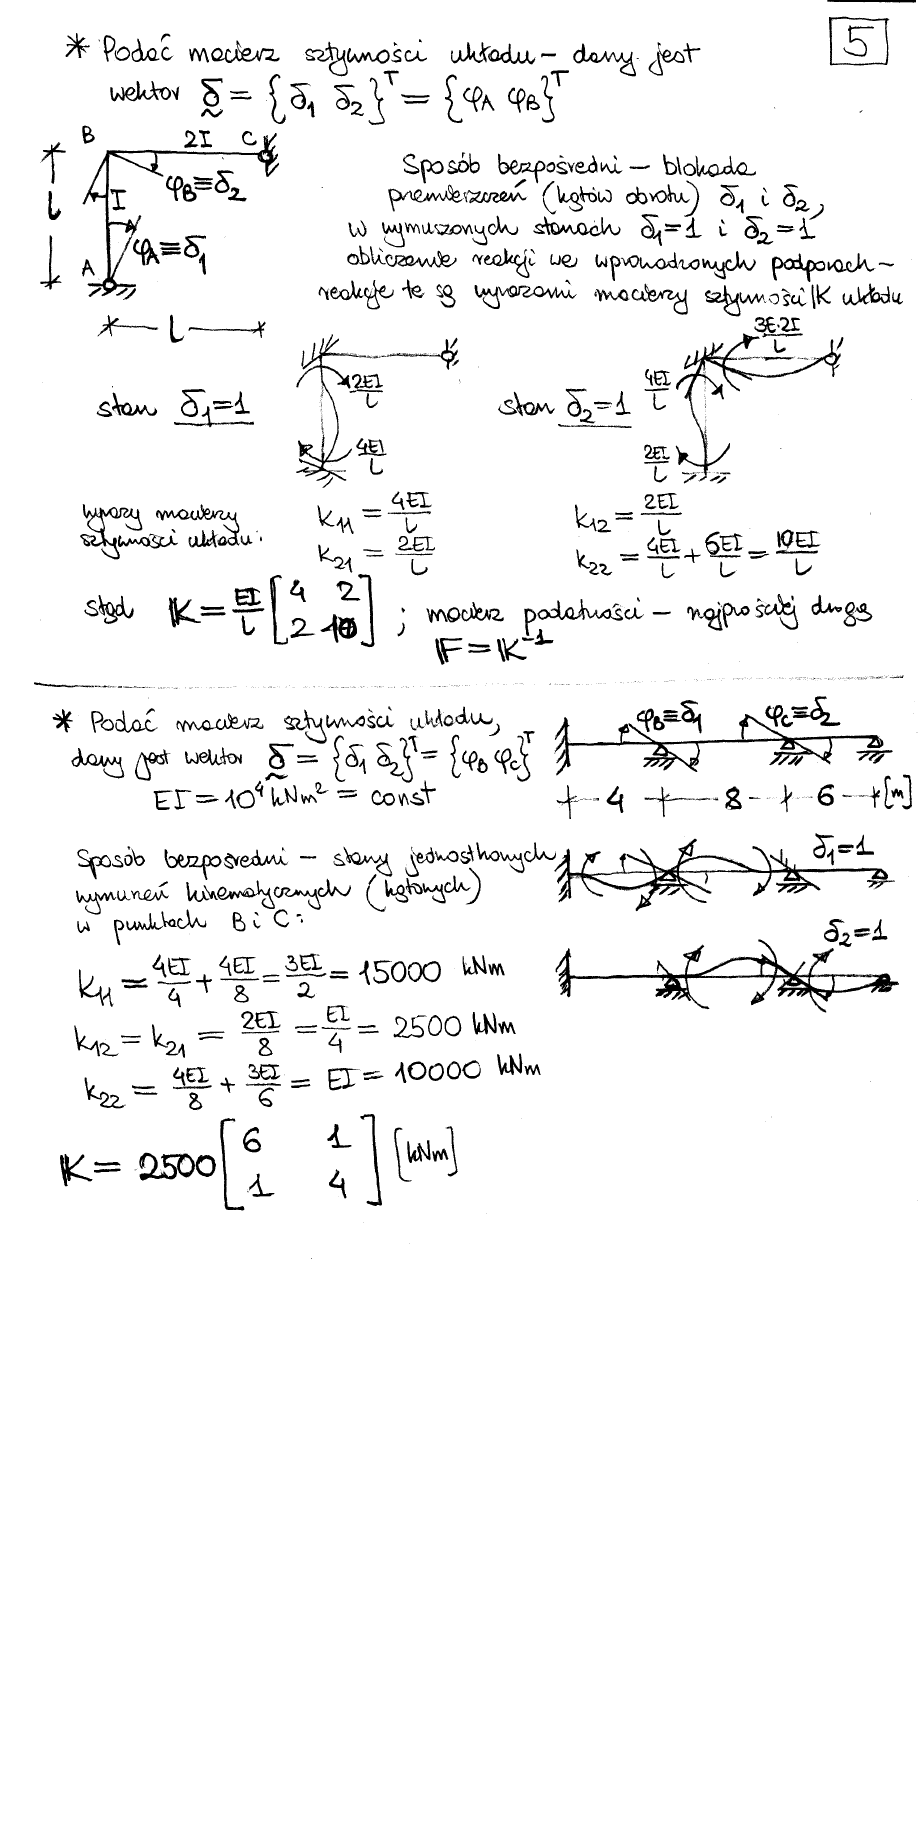 5
* Podać macierz sztywności układu – dany jest
wektor δ = {δ₁ δ₂}ᵀ = {φA φB}ᵀ
B 2I C
φB≡δ₂
l I
φA≡δ₁
A
l
Sposób bezpośredni – blokada
przemieszczeń (kątów obrotu) δ₁ i δ₂,
w wymuszonych stanach δ₁=1 i δ₂=1
obliczenie reakcji we wprowadzonych podporach –
reakcje te są wyrazami macierzy sztywności K układu
stan δ₁=1
2EI/l
4EI/l
stan δ₂=1
3E·2I/l
4EI/l
2EI/l
wyrazy macierzy
sztywności układu:
k₁₁ = 4EI/l
k₂₁ = 2EI/l
k₁₂ = 2EI/l
k₂₂ = 4EI/l + 6EI/l = 10EI/l
stąd K = EI/l [4 2; 2 10] ; macierz podatności – najprościej drogą
F = K⁻¹
* Podać macierz sztywności układu,
dany jest wektor δ = {δ₁ δ₂}ᵀ = {φB φC}ᵀ
EI = 10⁴ kNm² = const
φB≡δ₁ φC≡δ₂
4 8 6 [m]
Sposób bezpośredni – stany jednostkowych
wymuszeń kinematycznych (kątowych)
w punktach B i C:
δ₁=1
δ₂=1
k₁₁ = 4EI/4 + 4EI/8 = 3EI/2 = 15000 kNm
k₁₂ = k₂₁ = 2EI/8 = EI/4 = 2500 kNm
k₂₂ = 4EI/8 + 3EI/6 = EI = 10000 kNm
K = 2500 [6 1; 1 4] [kNm]